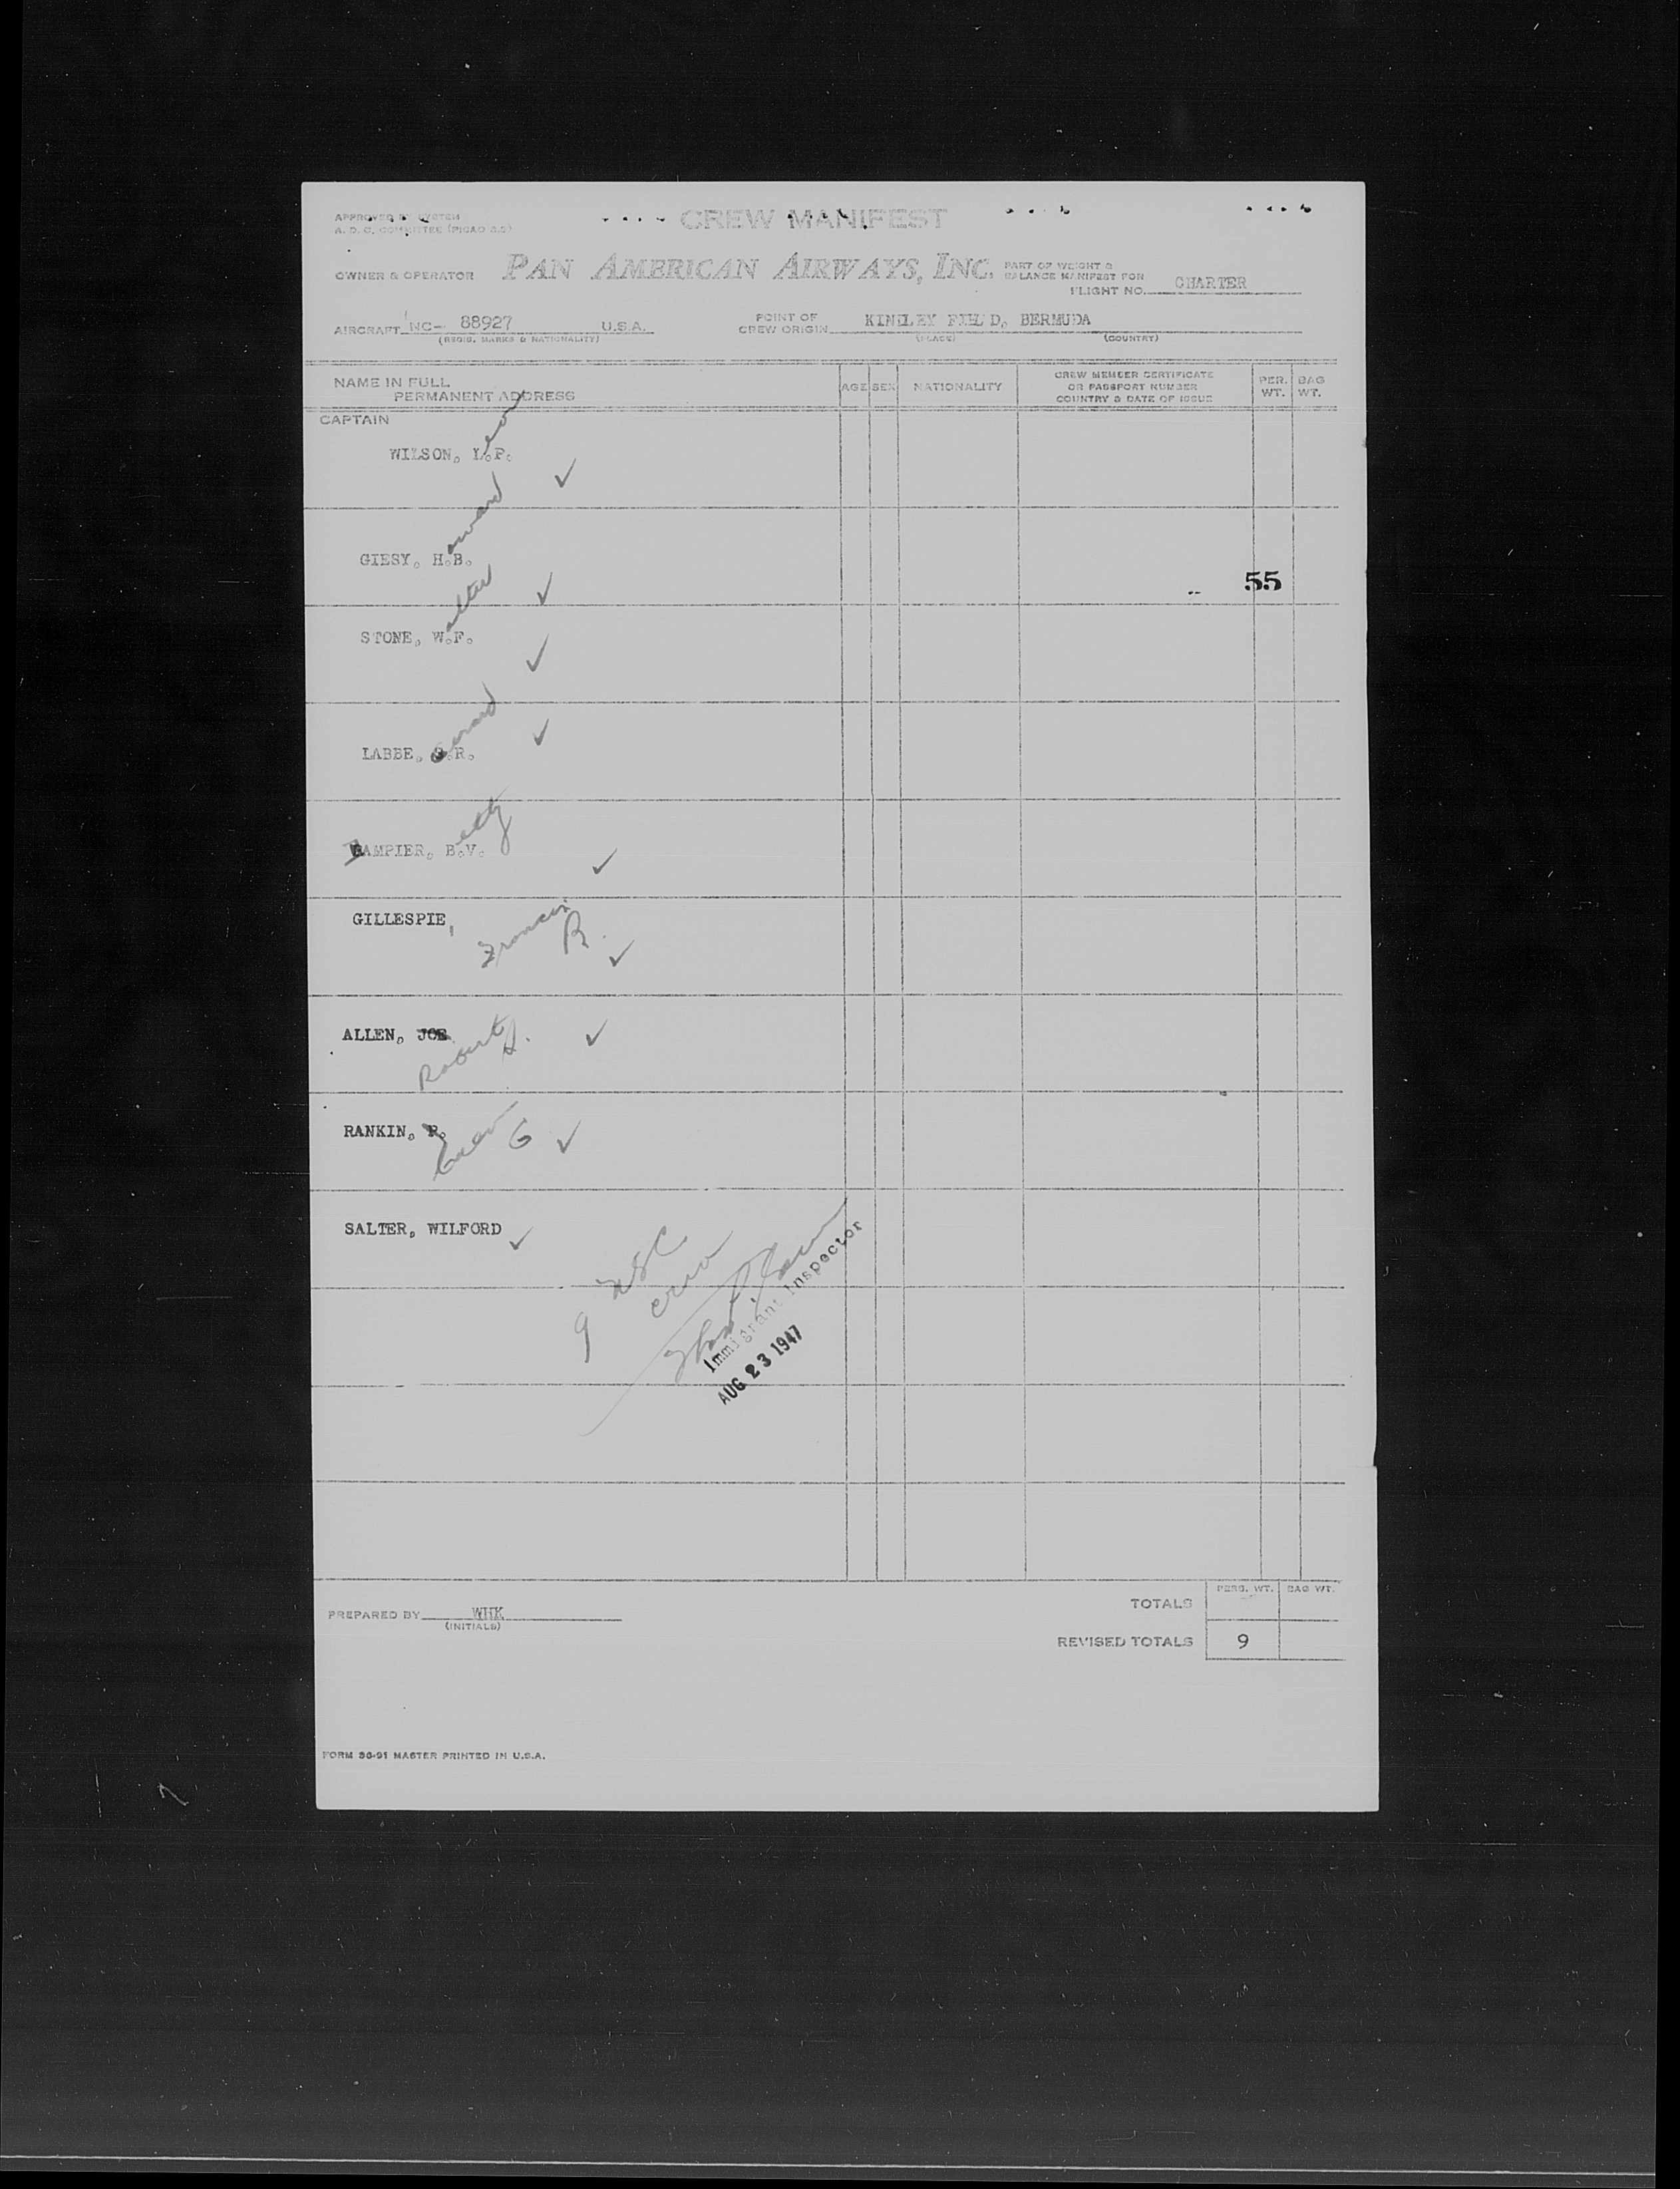 APPROVED BY SYSTEM
A. D. C. COMMITTEE (PICAO 3.5)
CREW MANIFEST
OWNER & OPERATOR PAN AMERICAN AIRWAYS, INC. PART OF WEIGHT &
BALANCE MANIFEST FOR
FLIGHT NO. CHARTER
AIRCRAFT NC- 88927 U.S.A.
(REGIS. MARKS & NATIONALITY)
POINT OF
CREW ORIGIN KINDLEY FIELD, BERMUDA
(PLACE) (COUNTRY)
NAME IN FULL
PERMANENT ADDRESS
AGE SEX NATIONALITY
CREW MEMBER CERTIFICATE
OR PASSPORT NUMBER
COUNTRY & DATE OF ISSUE
PER. WT.
BAG WT.
CAPTAIN
WILSON, L.P. eon ✓
GIESY, H.B. oward ✓
55
STONE, W.F. alter ✓
LABBE, G.R. erard ✓
DAMPIER, B.V. etty ✓
GILLESPIE, Francis R. ✓
ALLEN, JOE Robert J. ✓
RANKIN, R. G ✓
SALTER, WILFORD ✓
9 USC
crew
Immigrant Inspector
AUG 23 1947
PREPARED BY WHK
(INITIALS)
PERS. WT. BAG WT.
TOTALS
REVISED TOTALS 9
FORM 36-91 MASTER PRINTED IN U.S.A.